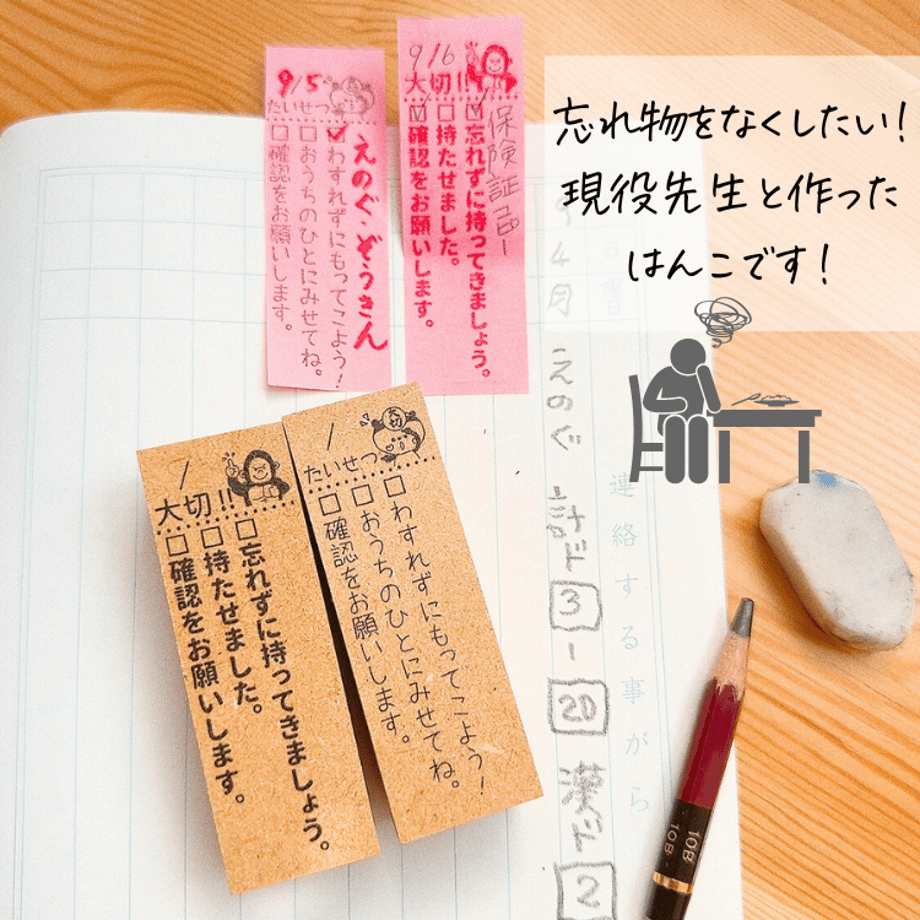 忘れ物をなくしたい！
現役先生と作った
はんこです！
9/6
大切!!
保険証コピー
☑忘れずに持ってきましょう。
□持たせました。
☑確認をお願いします。
9/5
大切
たいせつ
えのぐ・ぞうきん
☑わすれずにもってこよう！
□おうちのひとにみせてね。
□確認をお願いします。
/
大切
たいせつ
□わすれずにもってこよう！
□おうちのひとにみせてね。
□確認をお願いします。
/
大切!!
□忘れずに持ってきましょう。
□持たせました。
□確認をお願いします。
月
日
曜日
連絡する事がら
9月4日
えのぐ
計ド3-20
漢ド2
10B
10B